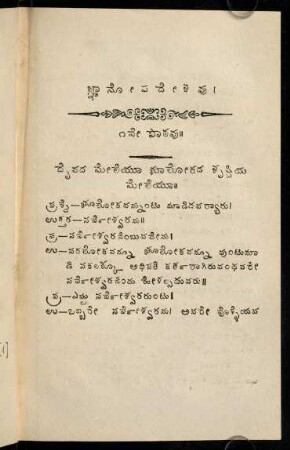 ಜ್ಞಾನೋಪದೇಶವು।
೧ನೇ ಪಾಠವು॥
ದೈವದ ಮೇಲೆಯೂ ಭೂಲೋಕದ ಸೃಷ್ಟಿಯ
ಮೇಲೆಯೂ॥
ಪ್ರಶ್ನೆ—ಭೂಲೋಕವನ್ನುಂಟು ಮಾಡಿದವರ್ಯಾರು।
ಉತ್ತರ—ಸರ್ವೇಶ್ವರನು॥
ಪ್ರ—ಸರ್ವೇಶ್ವರನೆಂಬುವನೇನು।
ಉ—ಪರಲೋಕವನ್ನೂ ಭೂಲೋಕವನ್ನೂ ವುಂಟುಮಾ
ಡಿ ಸಕಲಕ್ಕೂ ಅಧಿಪತಿ ಕರ್ತರಾಗಿರುವಂಥವರೇ
ಸರ್ವೇಶ್ವರನೆಂದು ಹೇಳಲ್ಪಡುವರು॥
ಪ್ರ—ಎಷ್ಟು ಸರ್ವೇಶ್ವರರುಂಟು।
ಉ—ಒಬ್ಬನೇ ಸರ್ವೇಶ್ವರನು। ಅವರೇ